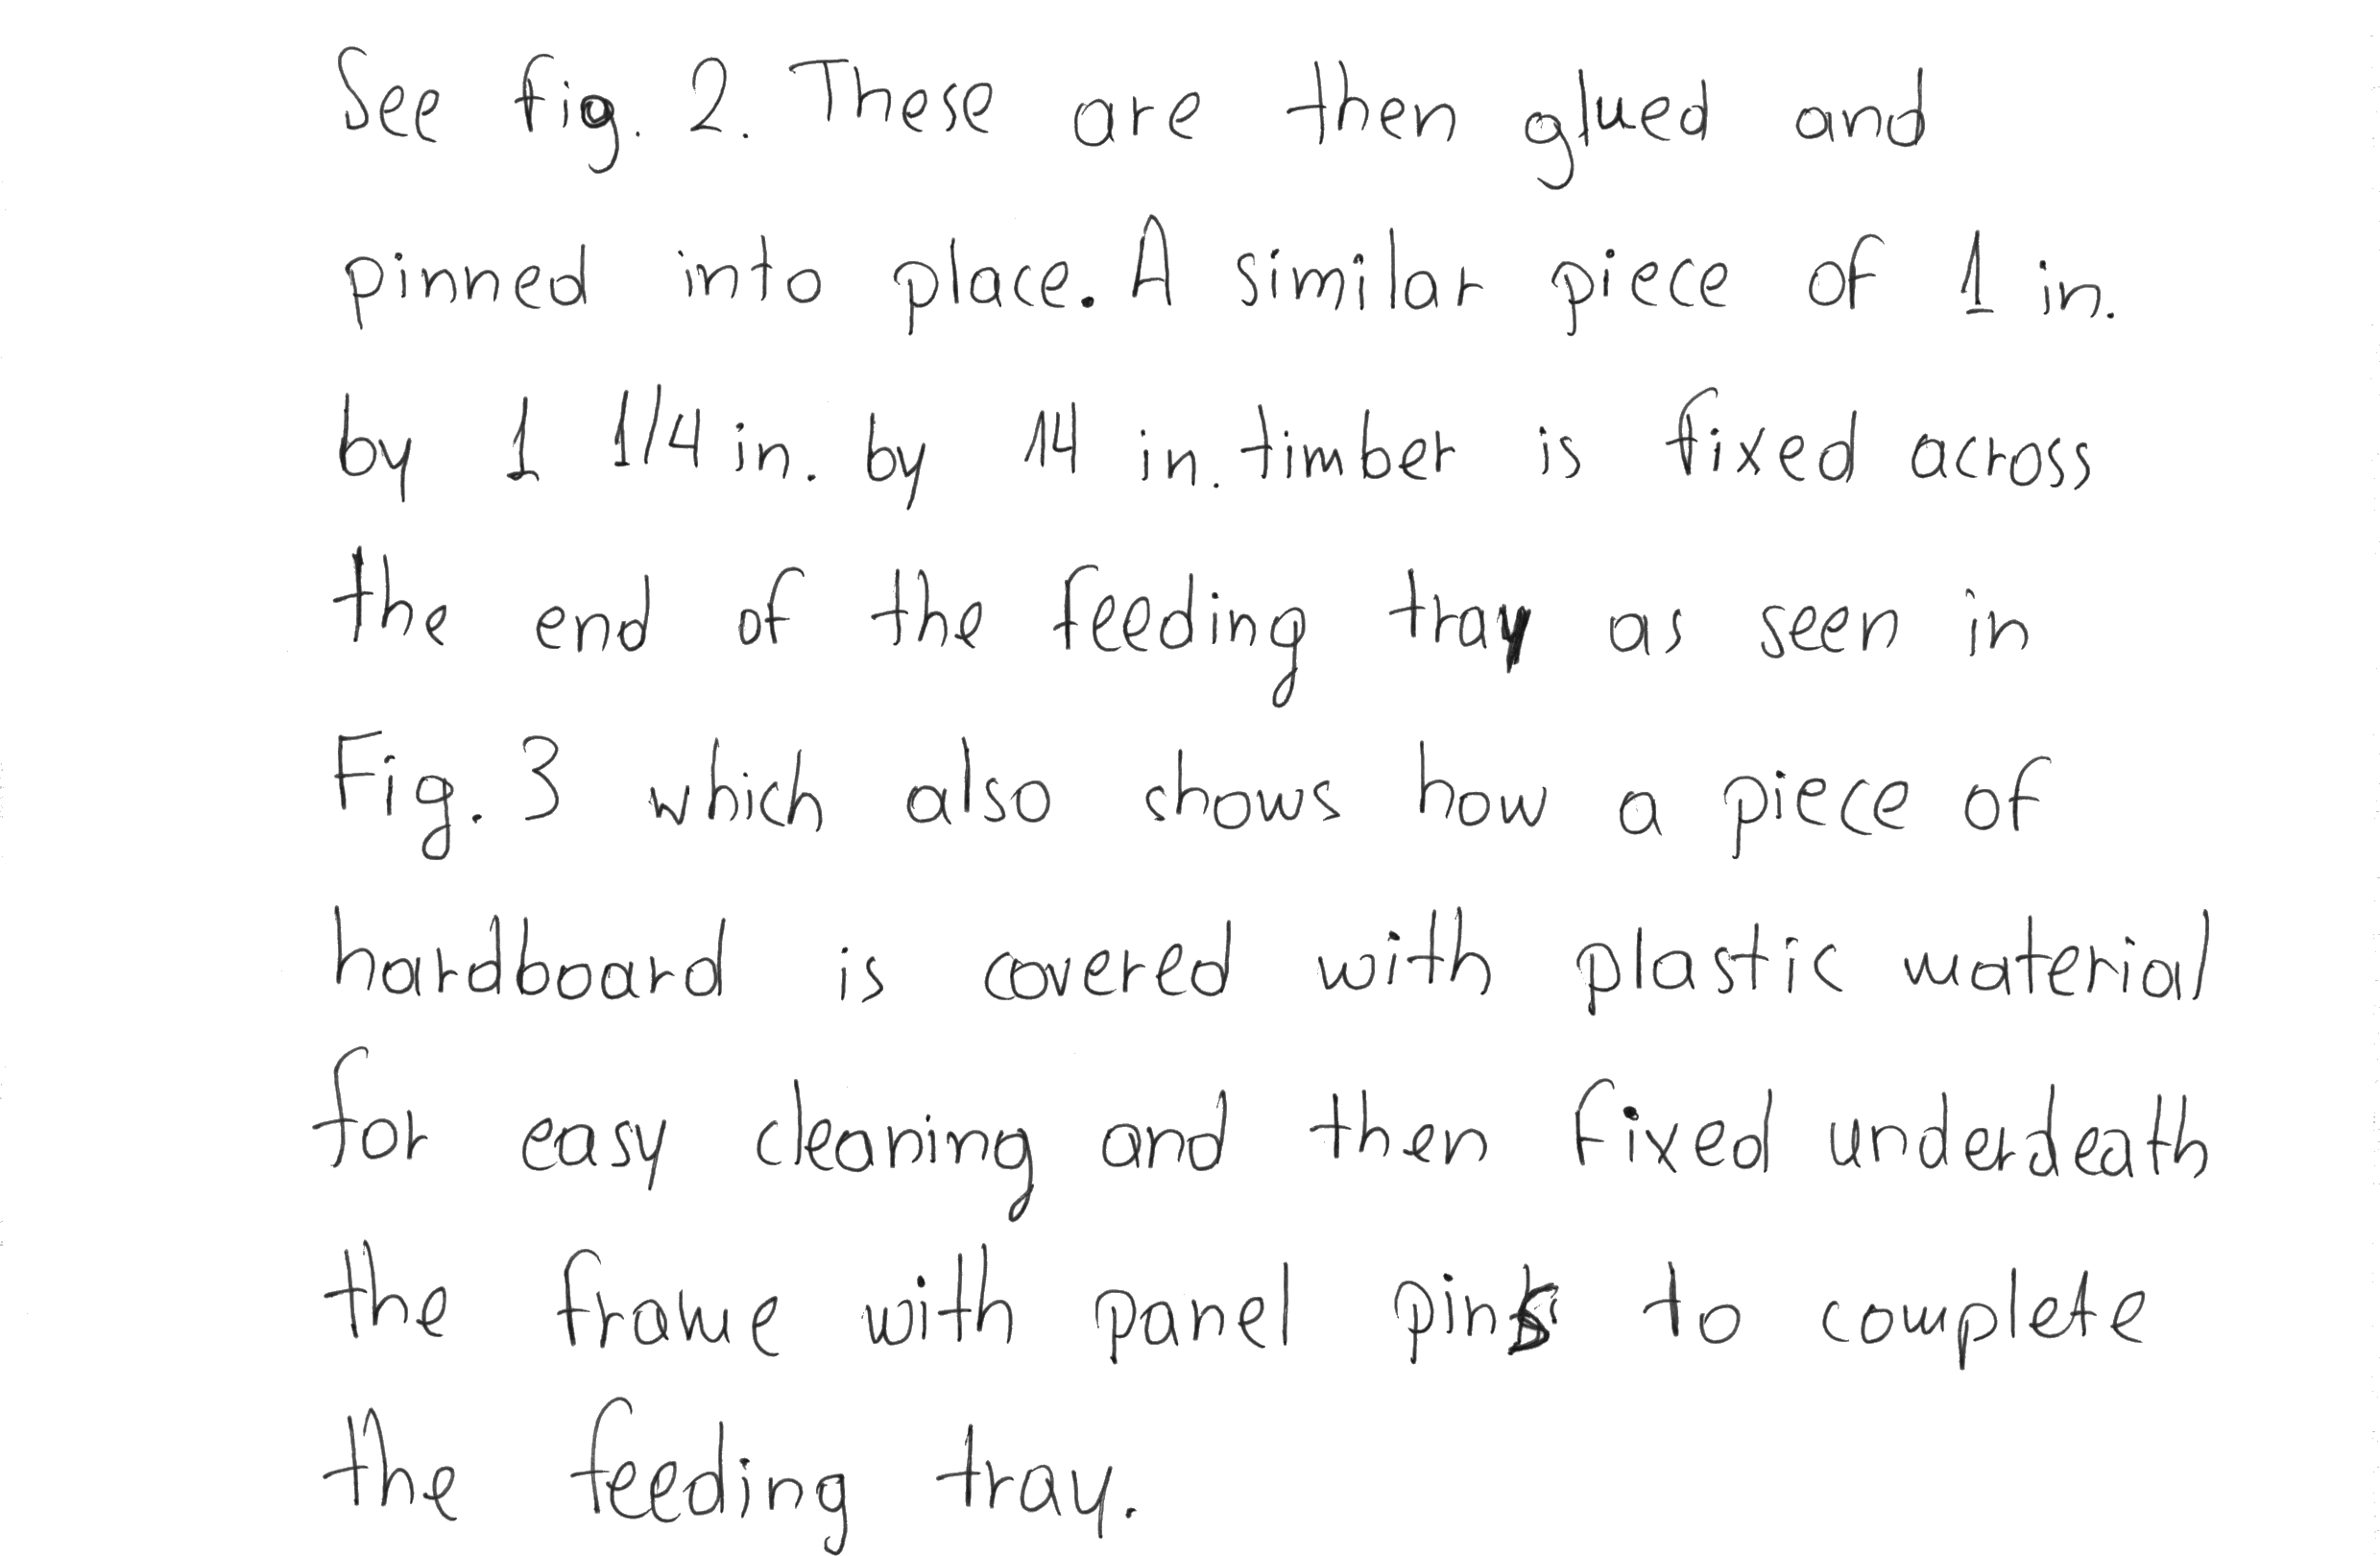 See fig. 2. These are then glued and
pinned into place. A similar piece of 1 in.
by 1 1/4 in. by 14 in. timber is fixed across
the end of the feeding tray as seen in
Fig. 3 which also shows how a piece of
hardboard is covered with plastic material
for easy cleaning and then fixed underdeath
the frame with panel pins to complete
the feeding tray.